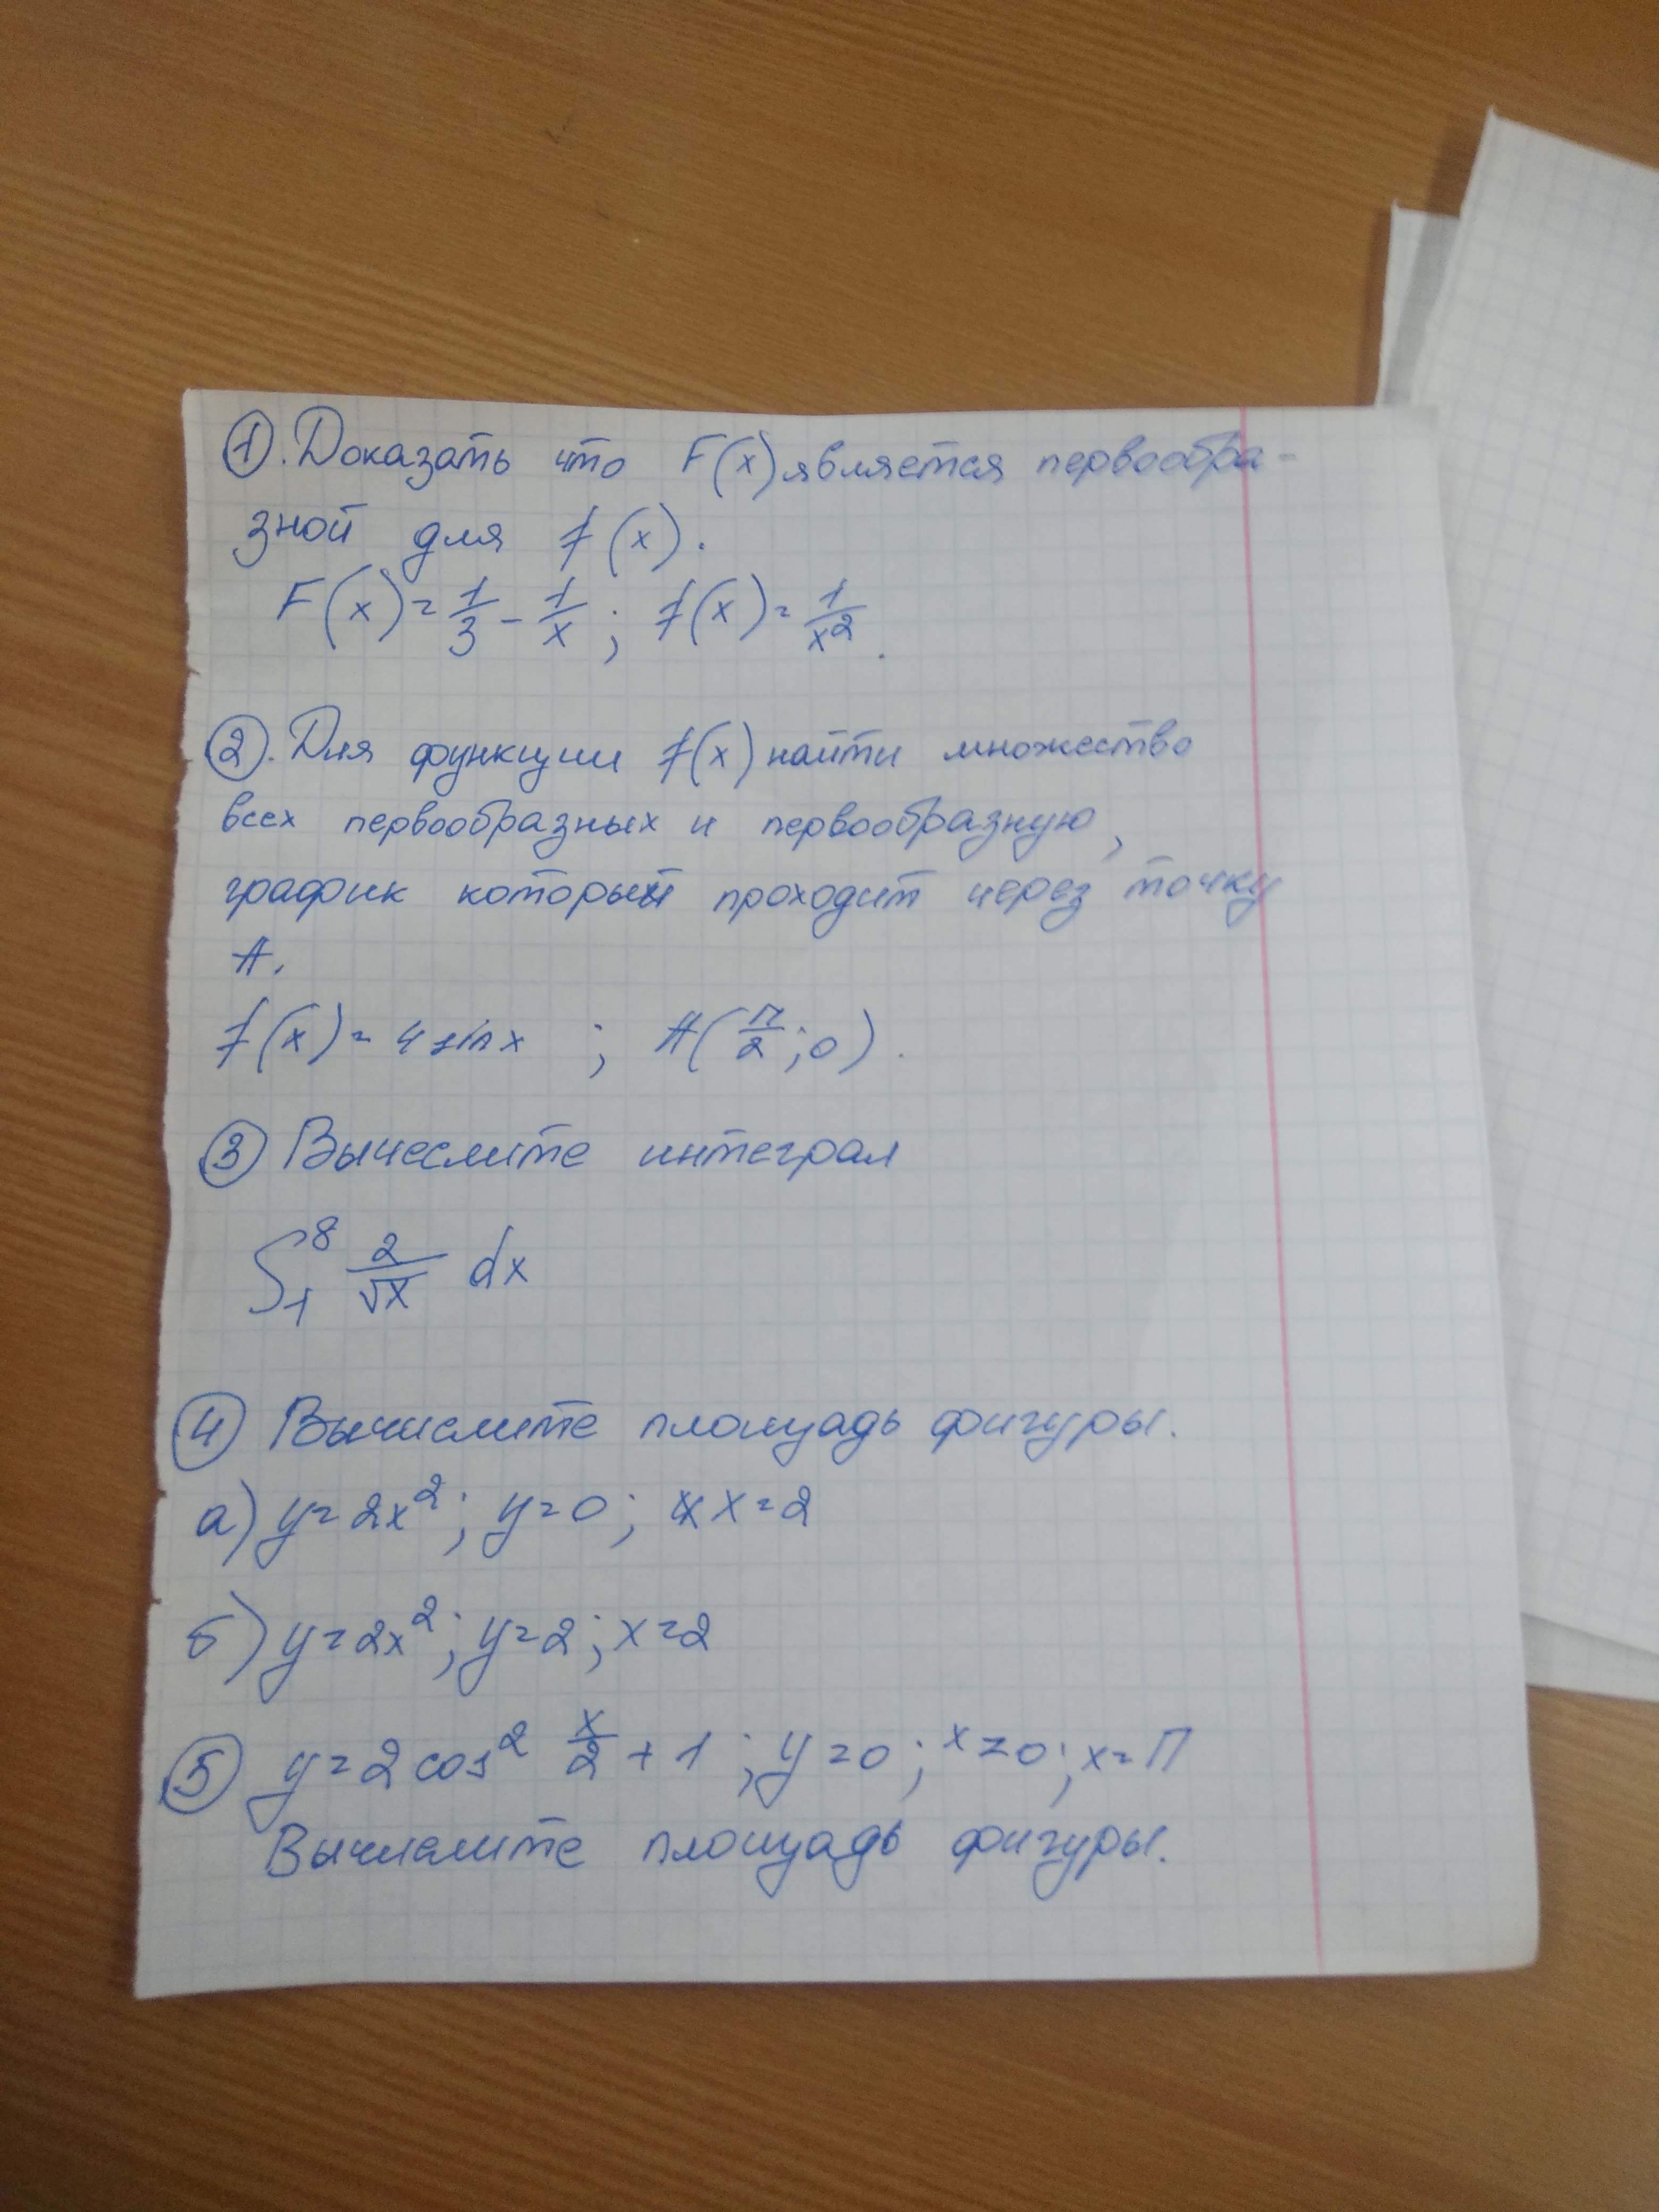 1. Доказать что F(x) является первообра-
зной для f(x).
F(x) = 1/3 - 1/x ; f(x) = 1/x² .
2. Для функции f(x) найти множество
всех первообразных и первообразную,
график который проходит через точку
A.
f(x) = 4 sin x ; A(π/2 ; 0) .
3 Вычеслите интеграл
∫₁⁸ 2/√x dx
4 Вычислите площадь фигуры.
а) y = 2x² ; y = 0 ; x = 2
б) y = 2x² ; y = 2 ; x = 2
5 y = 2 cos² x/2 + 1 ; y = 0 ; x = 0 ; x = П
Вычислите площадь фигуры.